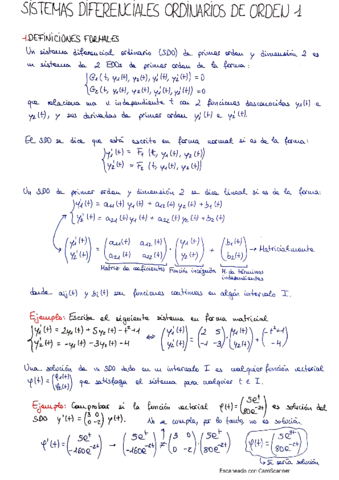 SISTEMAS DIFERENCIALES ORDINARIOS DE ORDEN 1
1. DEFINICIONES FORMALES
Un sistema diferencial ordinario (SDO) de primer orden y dimensión 2 es
un sistema de 2 EDOs de primer orden de la forma:
G₁(t, y₁(t), y₂(t), y₁'(t), y₂'(t)) = 0
G₂(t, y₁(t), y₂(t), y₁'(t), y₂'(t)) = 0
que relaciona una v. independiente t con 2 funciones desconocidas y₁(t) e
y₂(t), y sus derivadas de primer orden, y₁'(t) e y₂'(t).
El SDO se dice que está escrito en forma normal si es de la forma:
y₁'(t) = F₁(t, y₁(t), y₂(t))
y₂'(t) = F₂(t, y₁(t), y₂(t))
Un SDO de primer orden y dimensión 2 se dice lineal si es de la forma:
y₁'(t) = a₁₁(t) y₁(t) + a₁₂(t) y₂(t) + b₁(t)
y₂'(t) = a₂₁(t) y₁(t) + a₂₂(t) y₂(t) + b₂(t)
(y₁'(t) y₂'(t)) = (a₁₁(t) a₁₂(t) a₂₁(t) a₂₂(t)) · (y₁(t) y₂(t)) + (b₁(t) b₂(t)) → Matricialmente
Matriz de coeficientes Función incógnita M. de términos independientes
donde aᵢⱼ(t) y bᵢ(t) son funciones continuas en algún intervalo I.
Ejemplo: Escribe el siguiente sistema en forma matricial
y₁'(t) = 2y₁(t) + 5y₂(t) - t² + 1
y₂'(t) = -y₁(t) - 3y₂(t) - 4
⇔ (y₁'(t) y₂'(t)) = (2 5 -1 -3) · (y₁(t) y₂(t)) + (-t²+1 -4)
Una solución de un SDO dado en un intervalo I es cualquier función vectorial
φ(t) = (φ₁(t) φ₂(t)) que satisfaga el sistema para cualquier t ∈ I.
Ejemplo: Comprobar si la función vectorial φ(t) = (5eᵗ 80e⁻²ᵗ) es solución del
SDO y'(t) = (3 0 0 -2) y(t). No se cumple, por lo tanto, no es solución
φ'(t) = (5eᵗ -160e⁻²ᵗ) → (5eᵗ -160e⁻²ᵗ) = (3 0 0 -2) · (5eᵗ 80e⁻²ᵗ) φ(t) = (5e³ᵗ 80e⁻²ᵗ)
↳ Sí sería solución
Escaneado con CamScanner